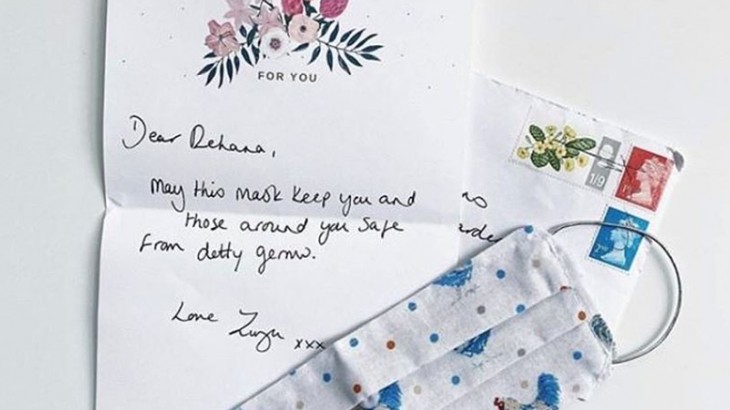 FOR YOU
Dear Rehana,
May this mask keep you and
those around you safe
From detty germs.
Love
xxx
1/9